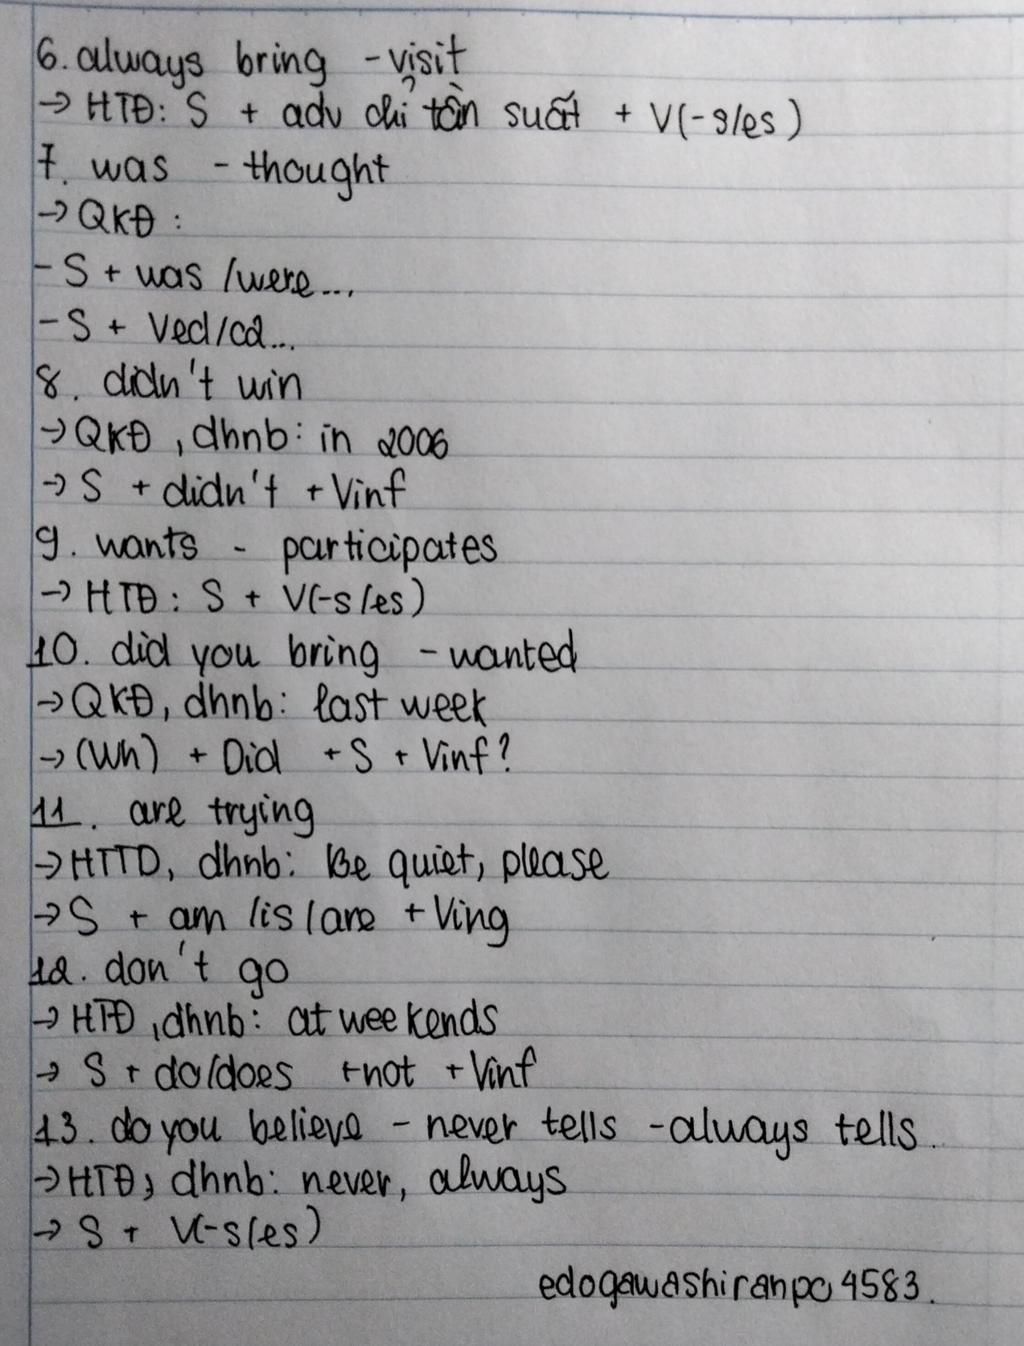 6. always bring - visit
→ HTĐ: S + adv chỉ tần suất + V(-s/es)
7. was - thought
→ QKĐ:
- S + was /were...
- S + Ved/cđ...
8. didn't win
→ QKĐ, dhnb: in 2006
→ S + didn't + Vinf
9. wants - participates
→ HTĐ: S + V(-s/es)
10. did you bring - wanted
→ QKĐ, dhnb: last week
→ (Wh) + Did + S + Vinf?
11. are trying
→ HTTD, dhnb: Be quiet, please
→ S + am /is/are + Ving
12. don't go
→ HTĐ, dhnb: at weekends
→ S + do/does + not + Vinf
13. do you believe - never tells - always tells.
→ HTĐ, dhnb: never, always
→ S + V(-s/es)
edogawashiranpo4583.